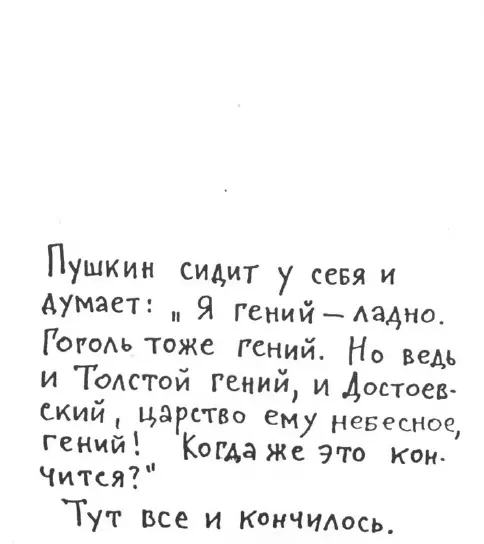 Пушкин сидит у себя и
думает: „ Я гений — ладно.
Гоголь тоже гений. Но ведь
и Толстой гений, и Достоев-
ский, царство ему небесное,
гений! Когда же это кон-
чится?"
Тут все и кончилось.